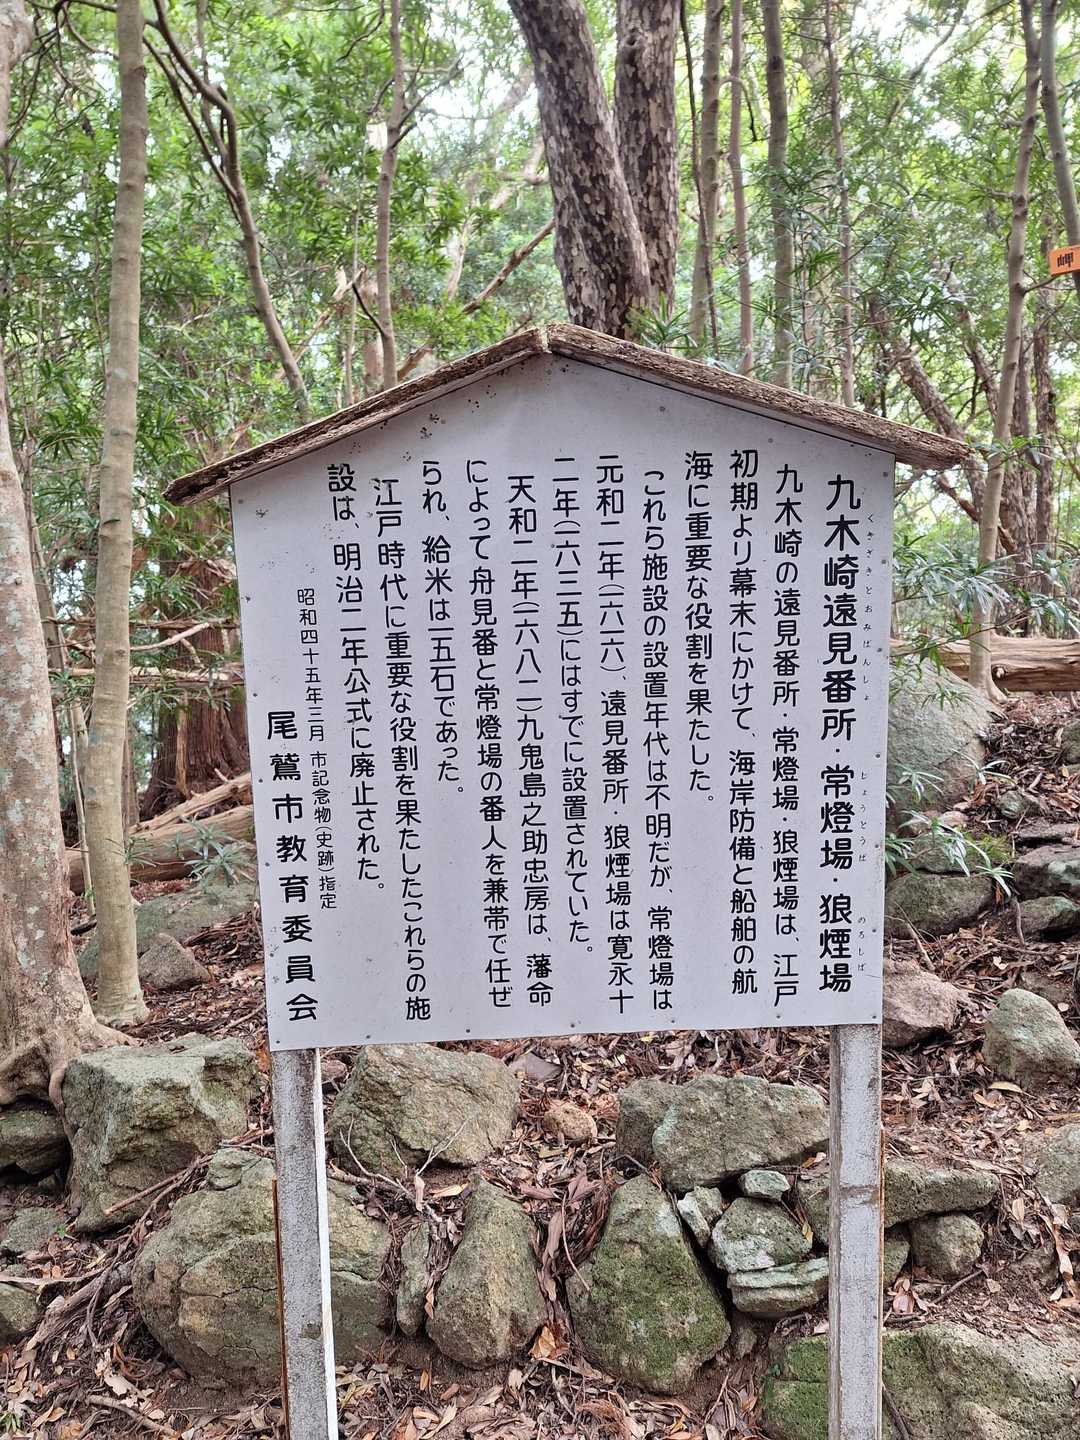 九木崎遠見番所・常燈場・狼煙場
くきざきとおみばんしょ じょうとうば のろしば
九木崎の遠見番所・常燈場・狼煙場は、江戸
初期より幕末にかけて、海岸防備と船舶の航
海に重要な役割を果たした。
これら施設の設置年代は不明だが、常燈場は
元和二年(一六一六)、遠見番所・狼煙場は寛永十
二年(一六三五)にはすでに設置されていた。
天和二年(一六八二)九鬼島之助忠房は、藩命
によって舟見番と常燈場の番人を兼帯で任ぜ
られ、給米は一五石であった。
江戸時代に重要な役割を果たしたこれらの施
設は、明治二年公式に廃止された。
昭和四十五年三月 市記念物(史跡)指定
尾鷲市教育委員会